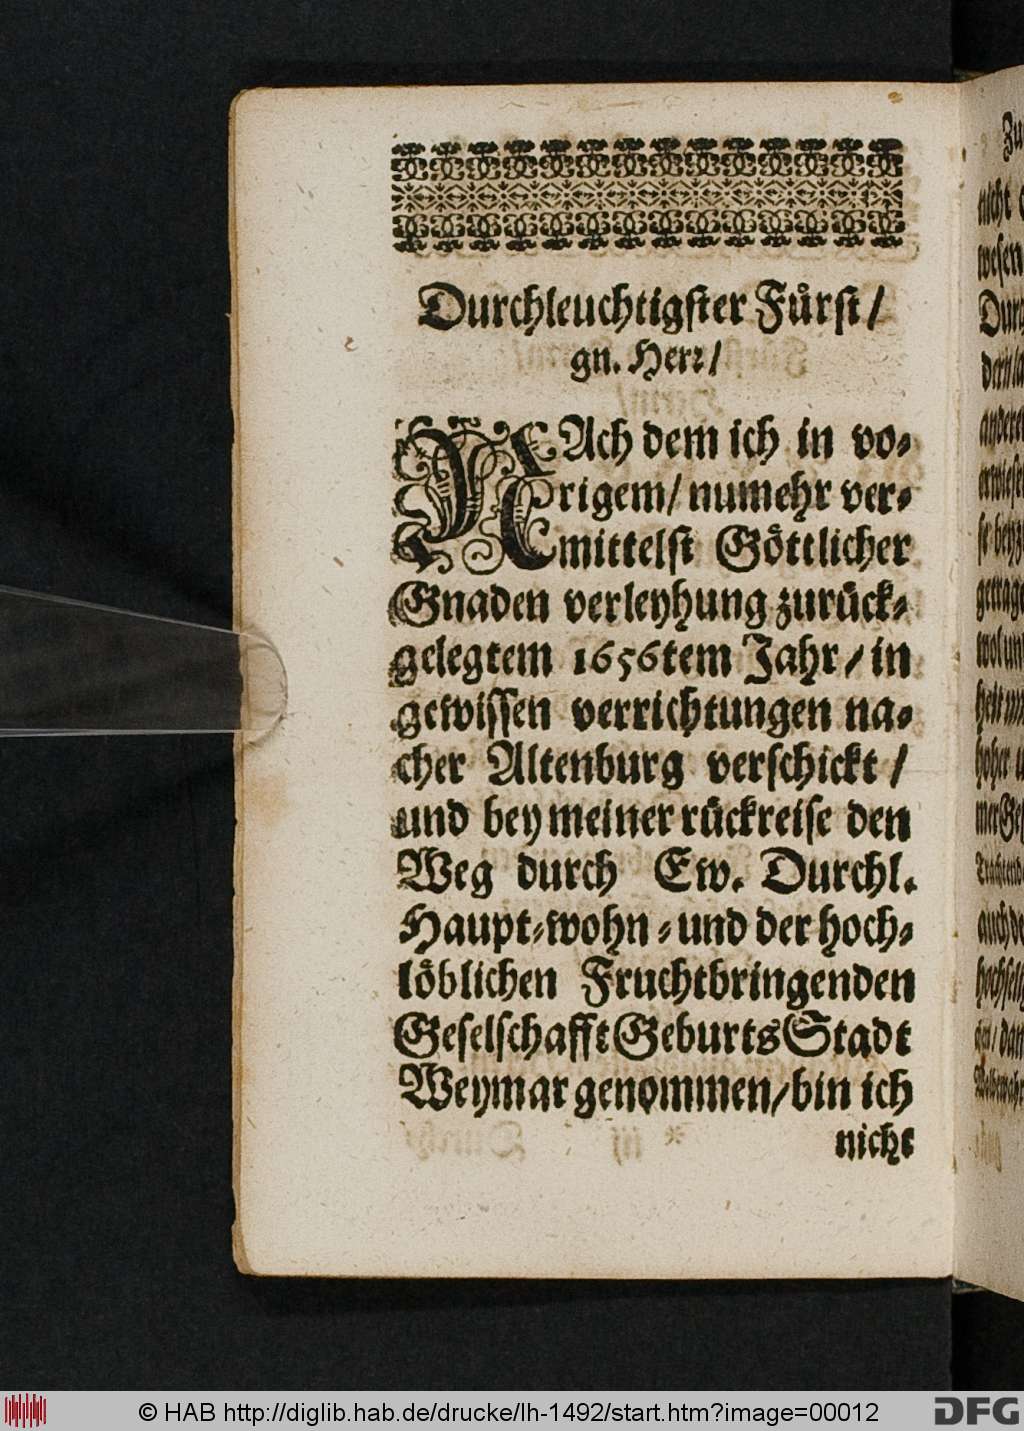 Durchleuchtigſter Fuͤrſt/
gn. Herꝛ/
NAch dem ich in vo⸗
rigem/ numehr ver⸗
mittelſt Goͤttlicher
Gnaden verleyhung zuruͤck⸗
gelegtem 1656tem Jahr/ in
gewiſſen verrichtungen na⸗
cher Altenburg verſchickt/
und bey meiner ruͤckreiſe den
Weg durch Ew. Durchl.
Haupt⸗wohn⸗und der hoch⸗
loͤblichen Fruchtbringenden
Geſelſchafft Geburts Stadt
Weymar genommen/ bin ich
nicht
© HAB http://diglib.hab.de/drucke/lh-1492/start.htm?image=00012
DFG